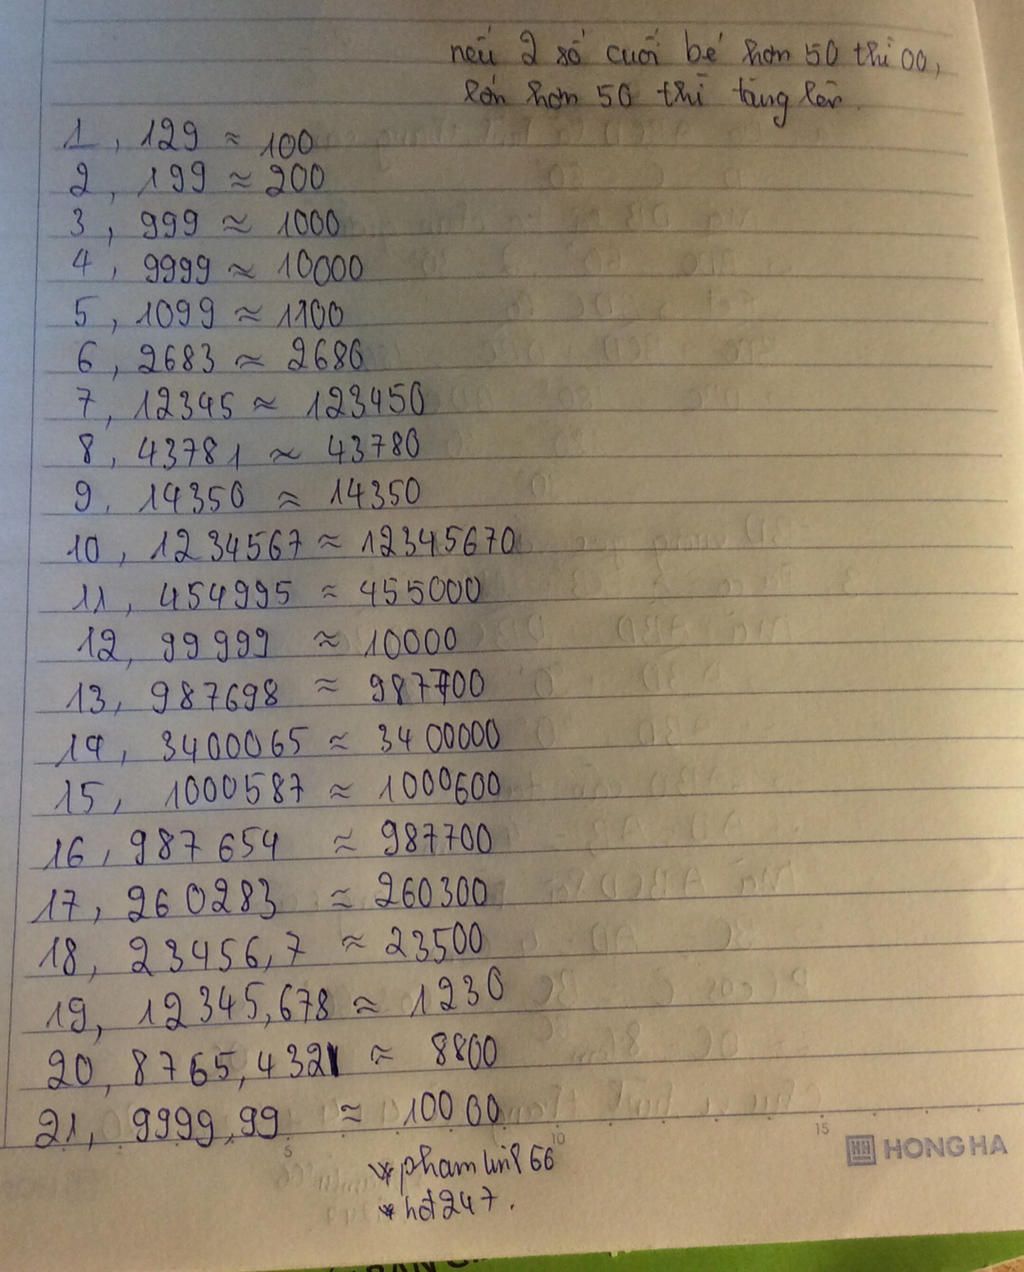 nếu 2 số cuối bé hơn 50 thì 00,
lớn hơn 50 thì tăng lên.
1, 129 ≈ 100
2, 199 ≈ 200
3, 999 ≈ 1000
4, 9999 ≈ 10000
5, 1099 ≈ 1100
6, 2683 ≈ 2680
7, 12345 ≈ 123450
8, 43781 ≈ 43780
9, 14350 ≈ 14350
10, 1234567 ≈ 12345670
11, 454995 ≈ 455000
12, 99999 ≈ 10000
13, 987698 ≈ 987700
14, 3400065 ≈ 3400000
15, 1000587 ≈ 1000600
16, 987654 ≈ 987700
17, 260283 ≈ 260300
18, 23456,7 ≈ 23500
19, 12345,678 ≈ 1230
20, 8765,4321 ≈ 8800
21, 9999,99 ≈ 10000
5 10 15
HONG HA
*phamlinh66
*hd247.